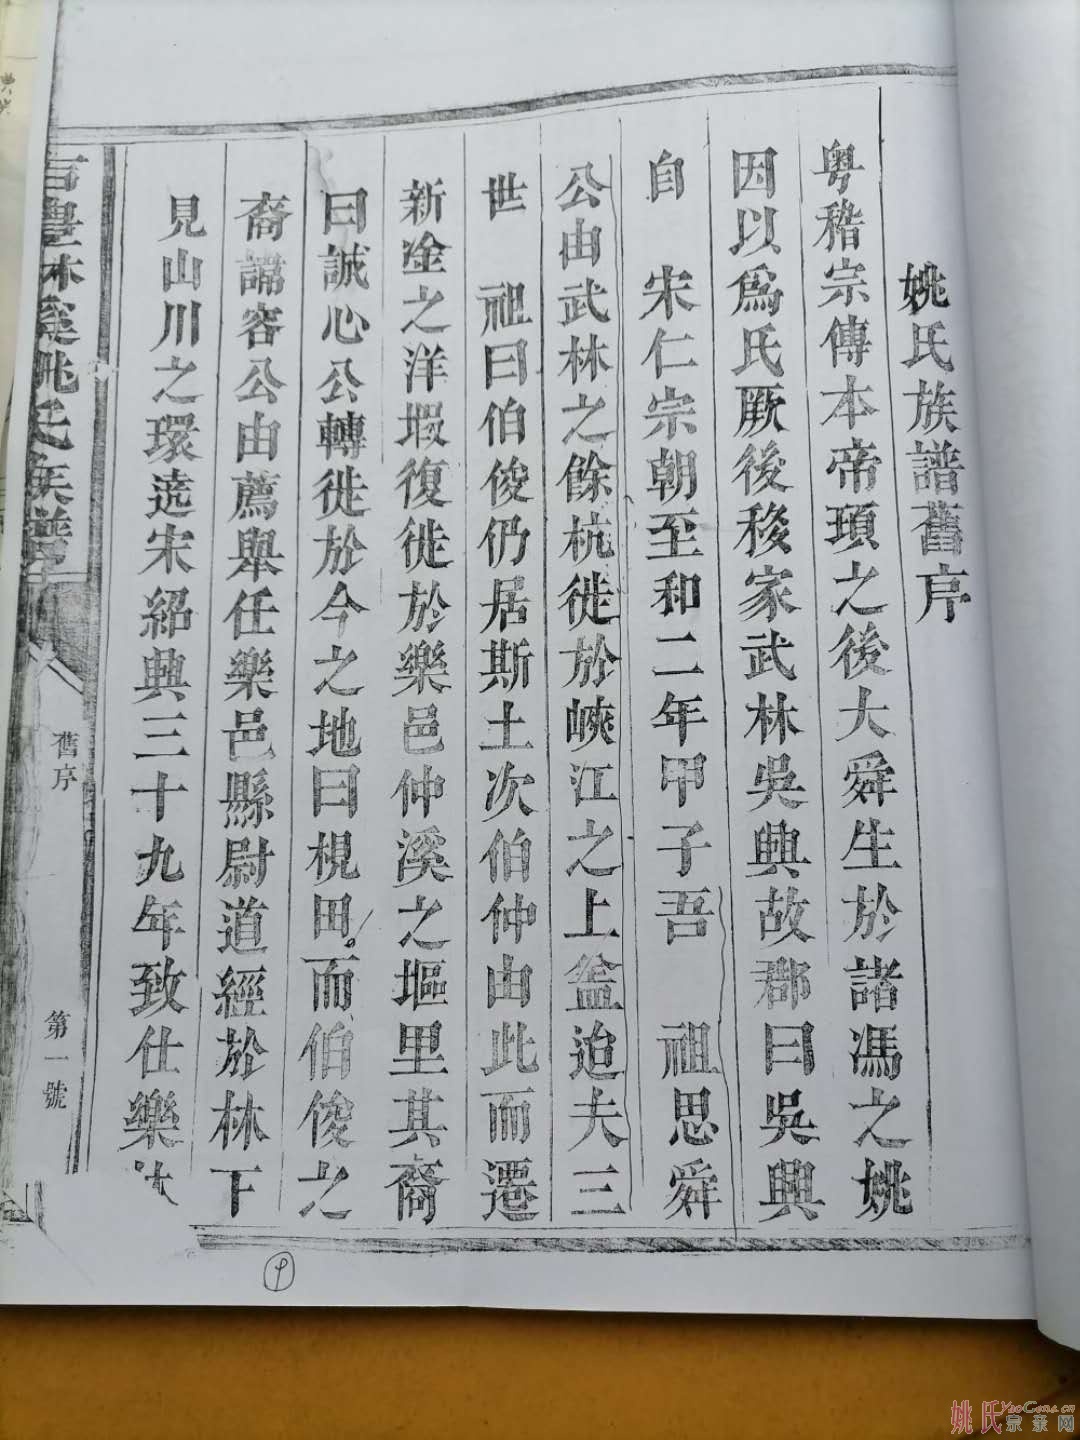 姚氏族譜舊序
粵稽宗傳本帝頊之後大舜生於諸馮之姚
因以爲氏厥後移家武林吳興故郡曰吳興
自 宋仁宗朝至和二年甲子吾 祖思舜
公由武林之餘杭徙於峽江之上盆迨夫三
世 祖曰伯俊仍居斯土次伯仲由此而遷
新淦之洋塅復徙於樂邑仲溪之塸里其裔
曰誠心公轉徙於今之地曰梘田而伯俊之
裔諱容公由薦舉任樂邑縣尉道經於林下
見山川之環遶宋紹興三十九年致仕樂
林溪姚氏族譜
舊序
第一號
姚氏宗亲网
YaoGens.cn